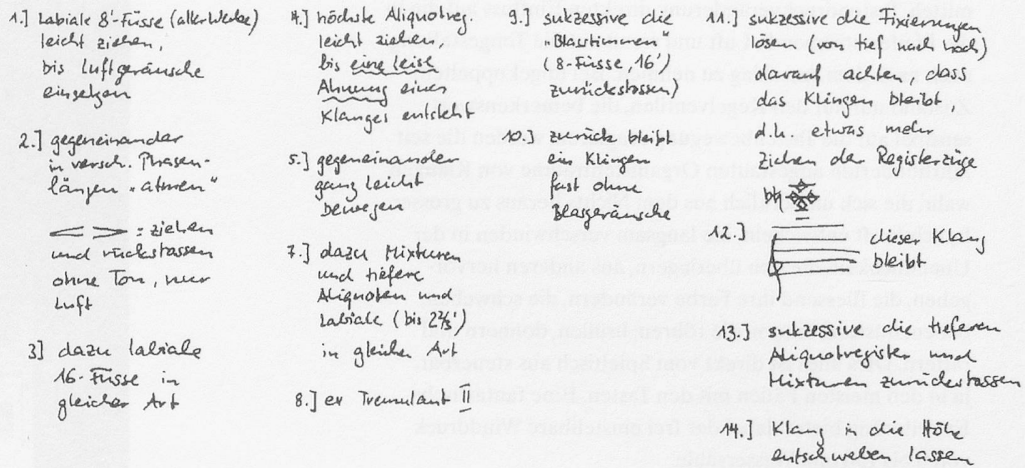 1.] Labiale 8'-Füsse (aller Werke)
leicht ziehen,
bis Luftgeräusche
einsetzen
2.] gegeneinander
in versch. Phasen-
längen „atmen"
< > = ziehen
und rückstossen
ohne Ton, nur
Luft
3] dazu labiale
16-Füsse in
gleicher Art
4.] höchste Aliquotreg.
leicht ziehen,
bis eine leise
Ahnung eines
Klanges entsteht
5.] gegeneinander
ganz leicht
bewegen
7.] dazu Mixturen
und tiefere
Aliquoten und
Labiale (bis 2⅔')
in gleicher Art
8.] ev Tremulant II
9.] sukzessive die
„Blasstimmen"
(8-Füsse, 16')
zurückstossen)
10.] zurück bleibt
ein Klingen
fast ohne
Blasgeräusche
11.] sukzessive die Fixierungen
lösen (von tief nach hoch)
darauf achten, dass
das Klingen bleibt,
d.h. etwas mehr
Ziehen der Registerzüge
12.] dieser Klang
bleibt
13.] sukzessive die tieferen
Aliquotregister und
Mixturen zurückstossen
14.] Klang in die Höhe
entschweben lassen